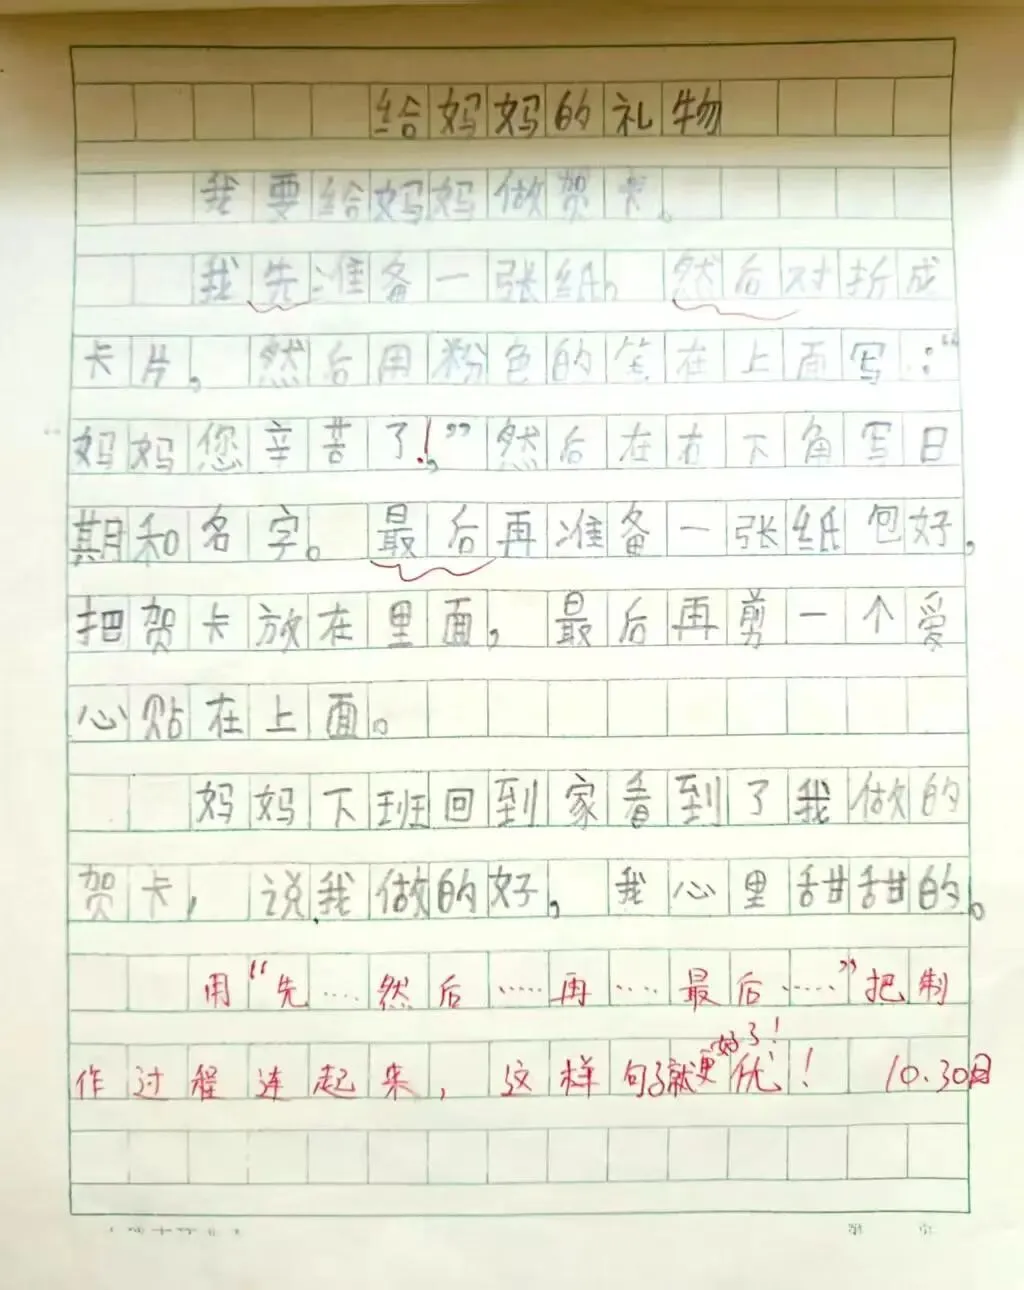 给妈妈的礼物
我要给妈妈做贺卡。
我先准备一张纸。然后对折成
卡片，然后用粉色的笔在上面写：“
妈妈您辛苦了！”然后在右下角写日
期和名字。最后再准备一张纸包好，
把贺卡放在里面，最后再剪一个爱
心贴在上面。
妈妈下班回到家看到了我做的
贺卡，说我做的好，我心里甜甜的。
用“先……然后……再……最后……”把制
作过程连起来，这样句子就更好了！优！ 10.30日